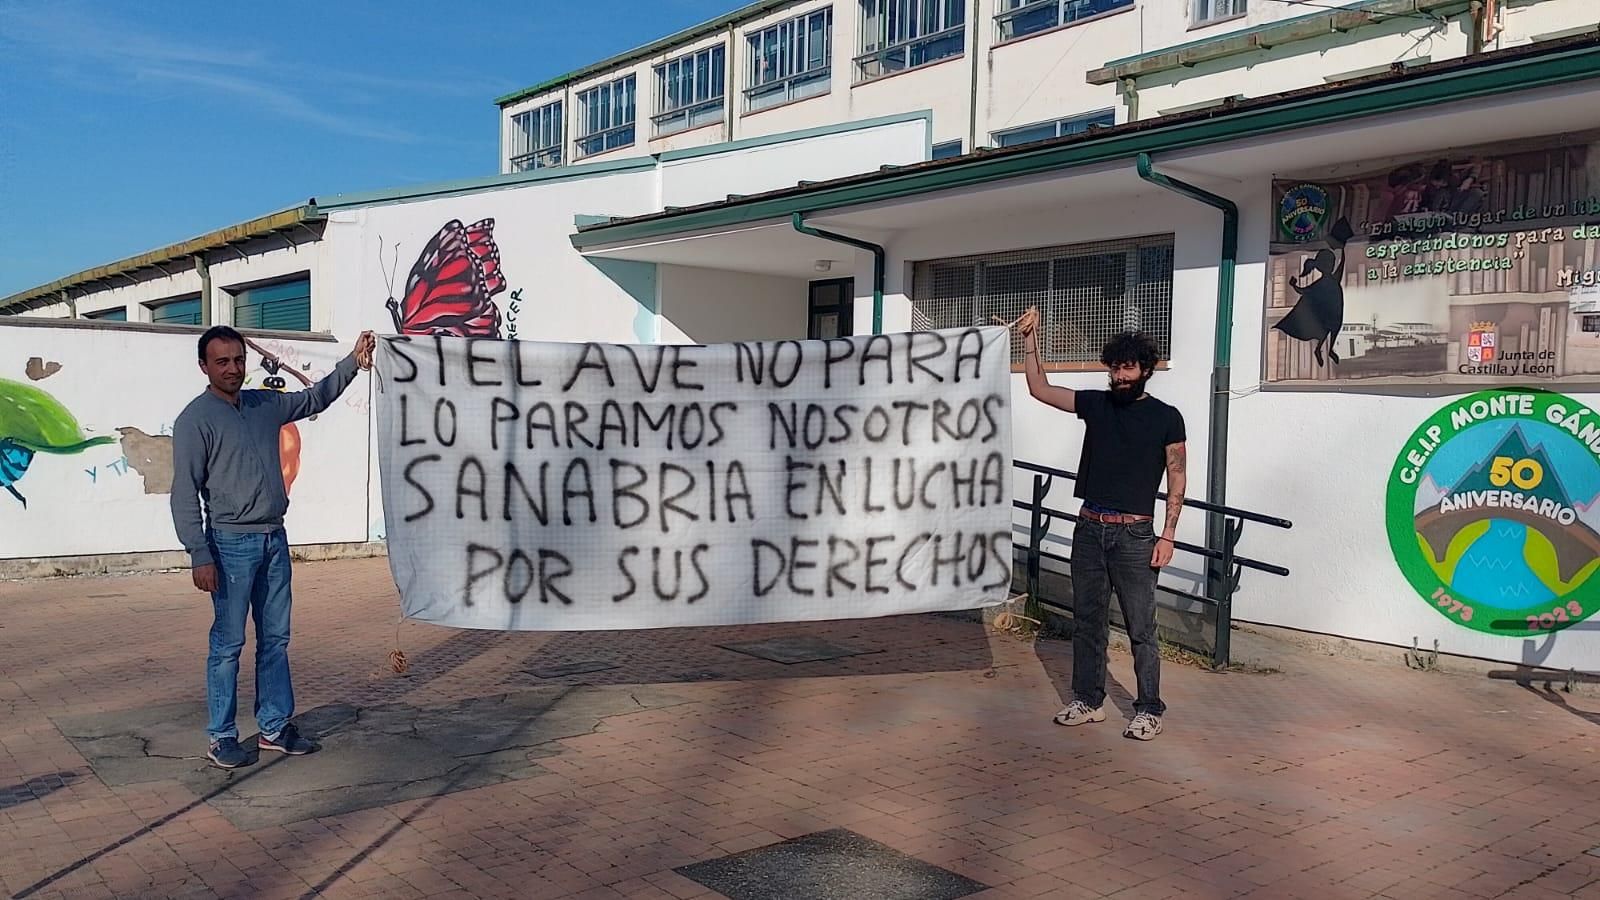 SI EL AVE NO PARA
LO PARAMOS NOSOTROS
SANABRIA EN LUCHA
POR SUS DERECHOS
50
ANIVERSARIO
"En algún lugar de un lib
esperándonos para da
a la existencia"
Migu
Junta de
Castilla y León
C.E.I.P MONTE GÁNDA
50
ANIVERSARIO
1973 2023
RECER
PARA
LAS
Y